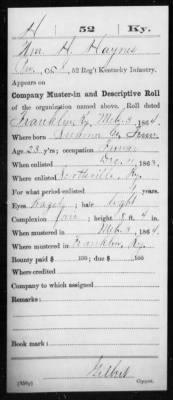 H 52 Ky.
Wm. H. Haynes
Co. , 52 Reg't Kentucky Infantry.
Appears on
Company Muster-in and Descriptive Roll
of the organization named above. Roll dated
Franklin, Ky, Mch. 3, 1864.
Where born Sumner Co, Tenn
Age 23 y'rs; occupation Farmer
When enlisted , 1863.
Where enlisted Scottsville, Ky.
For what period enlisted years.
Eyes ; hair light
Complexion fair ; height 5 ft. in.
When mustered in Mch. 3, 1864.
Where mustered in Franklin, Ky.
Bounty paid $ 100; due $ 100
Where credited
Company to which assigned
Remarks:
Book mark:
Gilbert
Copyist.